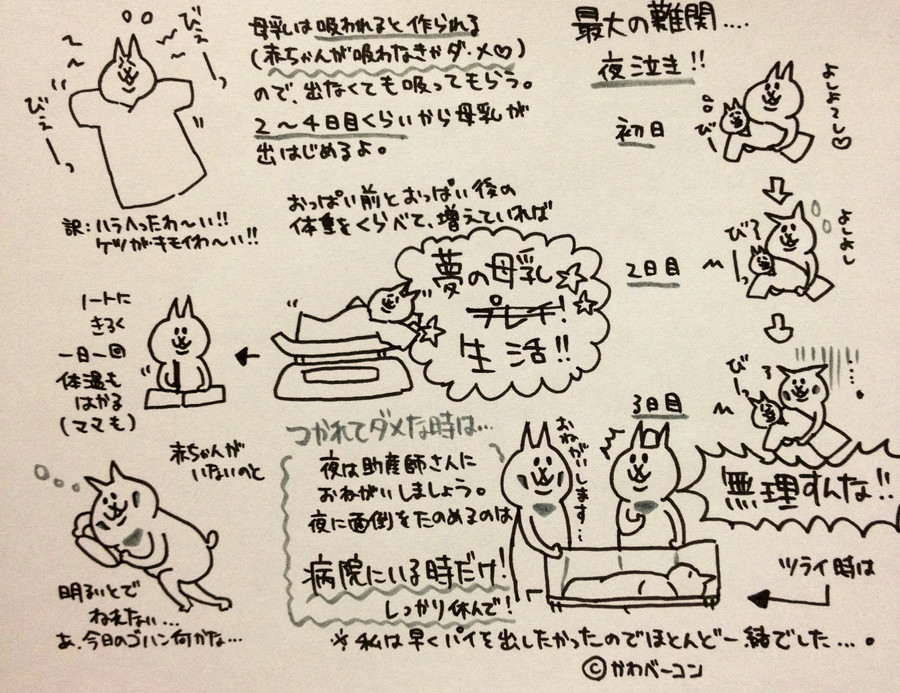 びぇーっ
びぇーっ
訳:ハラへったわ〜い!!
ケツがキモイわ〜い!!
母乳は吸われると作られる
(赤ちゃんが吸わなきゃダ・メ♡)
ので、出なくても吸ってもらう。
2〜4日目くらいから母乳が
出はじめるよ。
おっぱい前とおっぱい後の
体重をくらべて、増えていれば
夢の母乳
プレイ!
生活!!
ノートに
きろく
一日一回
体温も
はかる
(ママも)
赤ちゃんが
いないのと
明るいとで
ねれない…
あ、今日のゴハン何かな…
最大の難関....
夜泣き!!
初日
よしよ〜し♡
び
2日目
よしよし
びぇーっ
3日目
びぇーっ
無理すんな!!
ツライ時は
つかれてダメな時は…
夜は助産師さんに
おねがいしましょう。
夜に面倒をたのめるのは
病院にいる時だけ!
しっかり休んで!
おねがいします…
※私は早くパイを出したかったのでほとんど一緒でした…。
©かわベーコン